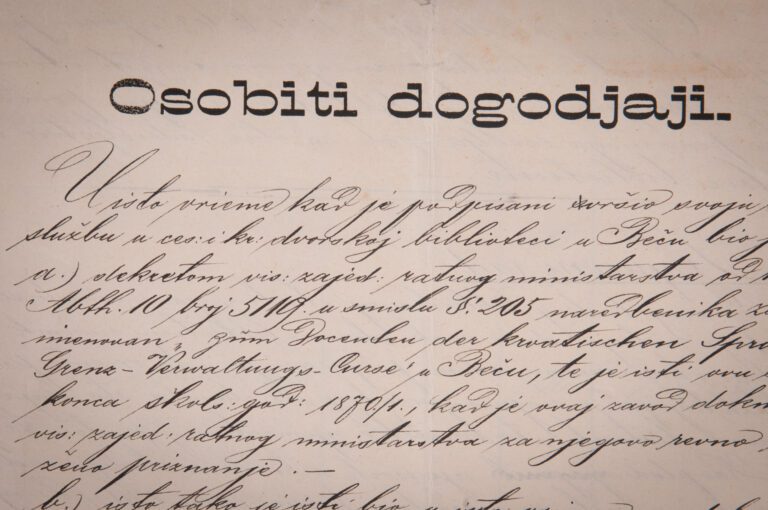 Osobiti dogodjaji.
U isto vrieme kad je podpisani svršio svoju
službu u ces: i kr: dvorskoj biblioteci u Beču bio
a.) dekretom vis: zajed: ratnog ministarstva od
Abth. 10 broj 5119. u smislu §: 205 naredbenika
imenovan „ zum Docenten der kroatischen
Grenz-Verwaltungs-Curse" u Beču, te je isti ovu
konca škols: god: 1870/1., kad je ovaj zavod
vis: zajed: ratnog ministarstva za njegovo revno
priznanje. —
b.) isto tako je isti bio u